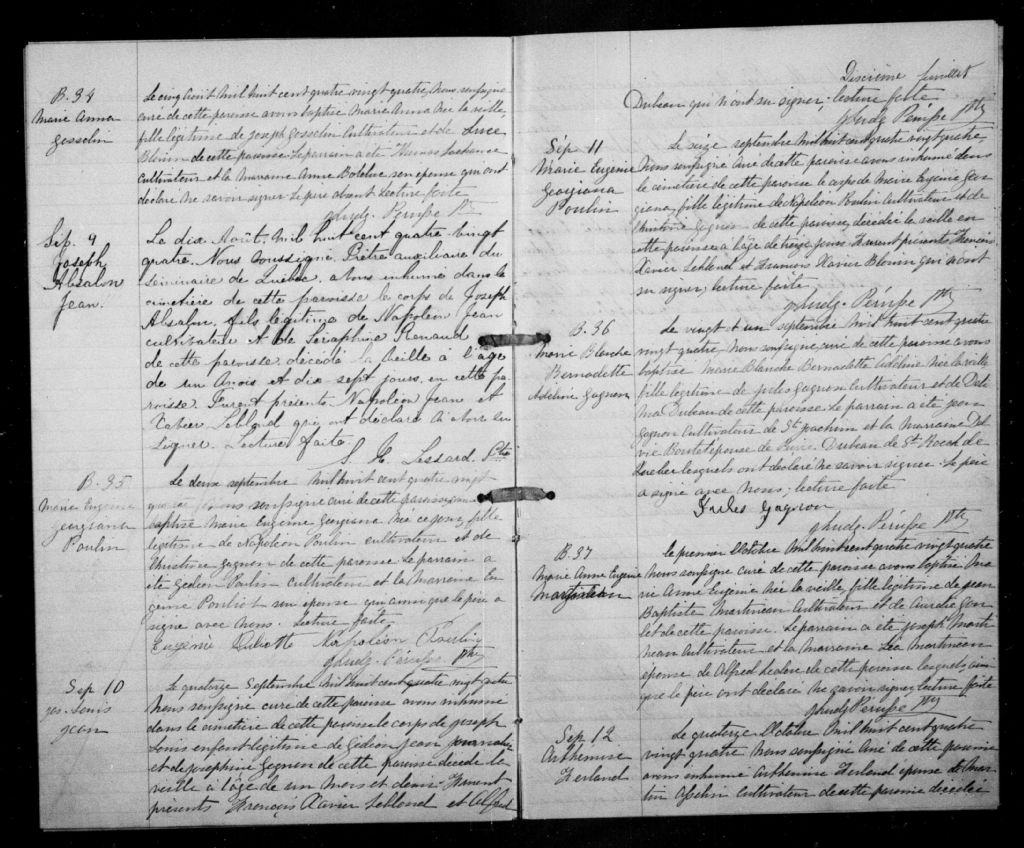 B. 34
Marie Anna
Gosselin
Le cinq Août mil huit cent quatre vingt quatre, Nous soussigné
curé de cette paroisse avons baptisé Marie Anna née la veille,
fille légitime de Joseph Gosselin cultivateur et de Luce
Blouin de cette paroisse. Le parrain a été Thomas Lachance
cultivateur et la marraine Anne Bolduc son épouse qui ont
déclaré ne savoir signer. Le père absent. Lecture faite
Pérusse Ptre
Sép. 9
Joseph
Absalon
Jean.
Le dix Août, mil huit cent quatre-vingt
quatre. Nous soussigné, Prêtre auxiliaire du
séminaire de Québec, avons inhumé dans le
cimetière de cette paroisse le corps de Joseph
Absalon, fils légitime de Napoléon Jean
cultivateur et de Séraphine Renaud
de cette paroisse décédé la veille à l'âge
de un mois et dix sept jours, en cette pa-
roisse. Furent présents Napoléon Jean et
Xavier Leblond qui ont déclaré ne savoir
signer. Lecture faite.
Lessard Ptre
B. 35
Marie Eugénie
Georgiana
Poulin
Le deux septembre mil huit cent quatre vingt
quatre nous soussigné curé de cette paroisse avons
baptisé Marie Eugénie Georgiana née ce jour, fille
légitime de Napoléon Poulin cultivateur et de
Christine Gagnon de cette paroisse. Le parrain a
été Gédéon Poulin cultivateur et la marraine Eu
génie Pouliot son épouse qui ainsi que le père a
signé avec nous. Lecture faite
Eugénie Napoléon Poulin
Pérusse Ptre
Sép 10
Jos. Louis
Jean
Le quatorze Septembre mil huit cent quatre vingt quatre
Nous soussigné curé de cette paroisse avons inhumé
dans le cimetière de cette paroisse le corps de Joseph
Louis enfant légitime de Gédéon Jean journalier
et de Joséphine Gagnon de cette paroisse décédé la
veille à l'âge de un mois et demi. Furent
présents François Xavier Leblond et Alfred
Dixième feuillet
Dubeau qui n'ont su signer; lecture faite
Pérusse Ptre
Sép 11
Marie Eugénie
Georgiana
Poulin
Le seize septembre mil huit cent quatre vingt quatre,
Nous soussigné curé de cette paroisse avons inhumé dans
le cimetière de cette paroisse le corps de Marie Eugénie Geor
giana, fille légitime de Napoléon Poulin cultivateur et de
Christine Gagnon de cette paroisse, décédée la veille en
cette paroisse à l'âge de treize jours. Furent présents François
Xavier Leblond et François Xavier Blouin qui n'ont
su signer; lecture faite.
Pérusse Ptre
B. 36
Marie Blanche
Bernadette
Adéline Gagnon
Le vingt et un septembre mil huit cent quatre
vingt quatre nous soussigné, curé de cette paroisse avons
baptisé Marie Blanche Bernadette Adéline née la veille
fille légitime de Jules Gagnon cultivateur et de Deli
ma Dubeau de cette paroisse. Le parrain a été Jean
Gagnon cultivateur de St Joachim et la marraine
épouse de Dubeau de St Roch de
Québec lesquels ont déclaré ne savoir signer. Le père
a signé avec nous; lecture faite
Jules Gagnon
Pérusse Ptre
B. 37
Marie Anne Eugénie
Martineau
Le premier Octobre mil huit cent quatre vingt quatre
Nous soussigné curé de cette paroisse avons baptisé Ma
rie Anne Eugénie née la veille, fille légitime de Jean
Baptiste Martineau cultivateur et de Aurélie
de cette paroisse. Le parrain a été Joseph Marti
neau cultivateur et la marraine Léa Martineau
épouse de Alfred de cette paroisse lesquels, ainsi
que le père ont déclaré ne savoir signer, lecture faite
Pérusse Ptre
Sép. 12
Arthémise
Le quatorze Octobre mil huit cent quatre
vingt quatre Nous soussigné curé de cette paroisse
avons inhumé Arthémise épouse de Mar
tin Asselin cultivateur de cette paroisse décédée